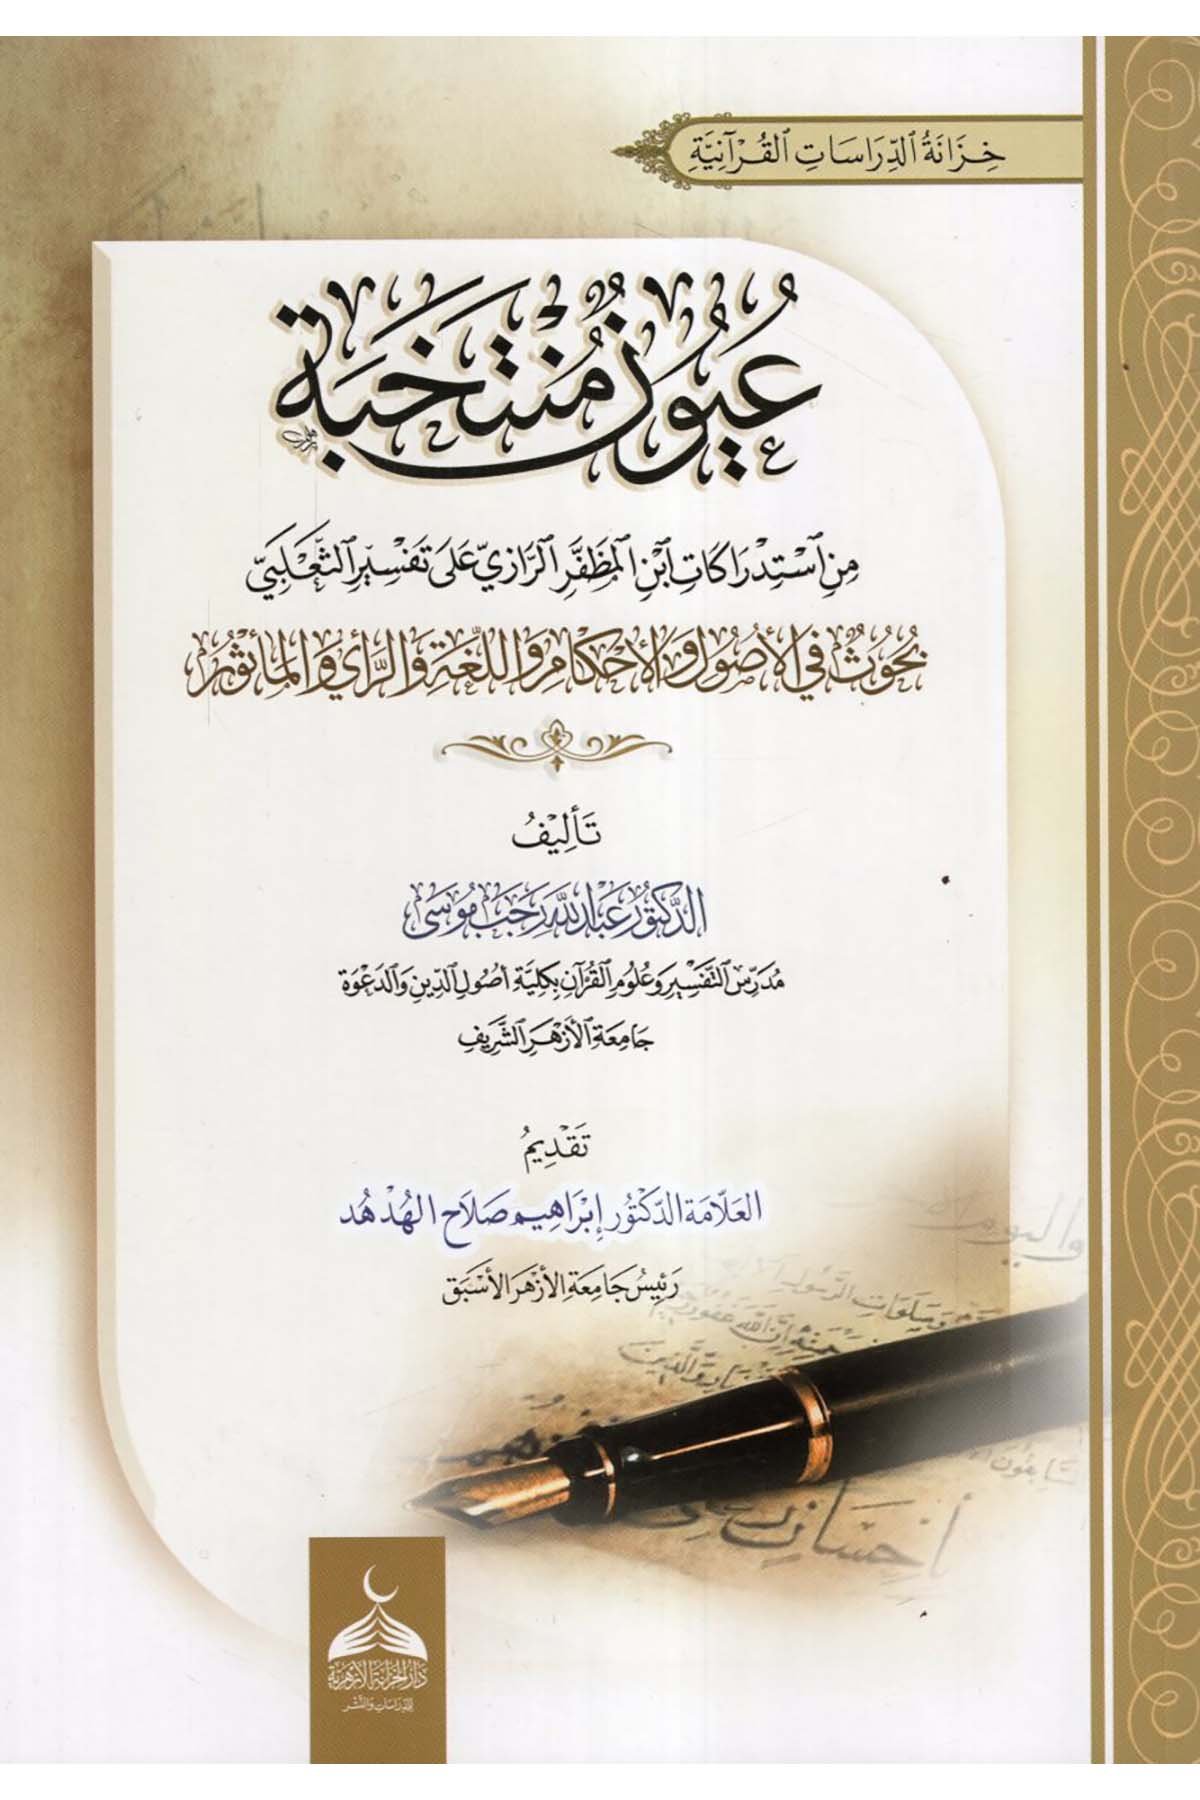 خِزَانَةُ الدِّرَاسَاتِ القُرْآنِيَّةِ
عُيُونٌ مُنْتَخَبَة
مِنِ اسْتِدْرَاكَاتِ ابْنِ المُظَفَّرِ الرَّازِيِّ عَلَى تَفْسِيرِ الثَّعْلَبِيِّ
بُحُوثٌ فِي الأُصُولِ وَالأَحْكَامِ وَاللُّغَةِ وَالرَّأْيِ وَالمَأْثُورِ
تَأْلِيفُ
الدَّكْتُورِ عَبْدِ اللَّهِ رَجَب مُوسَى
مُدَرِّسِ التَّفْسِيرِ وَعُلُومِ القُرْآنِ بِكُلِّيَّةِ أُصُولِ الدِّينِ وَالدَّعْوَةِ
جَامِعَةِ الأَزْهَرِ الشَّرِيفِ
تَقْدِيمُ
العَلَّامَة الدَّكْتُور إِبْرَاهِيم صَلَاح الهُدْهُد
رَئِيسُ جَامِعَةِ الأَزْهَرِ الأَسْبَقِ
وَاليَومِ
إِحْسَانٍ
دَارُ الخِزَانَةِ الأَزْهَرِيَّةِ
لِلدِّرَاسَاتِ وَالنَّشْرِ